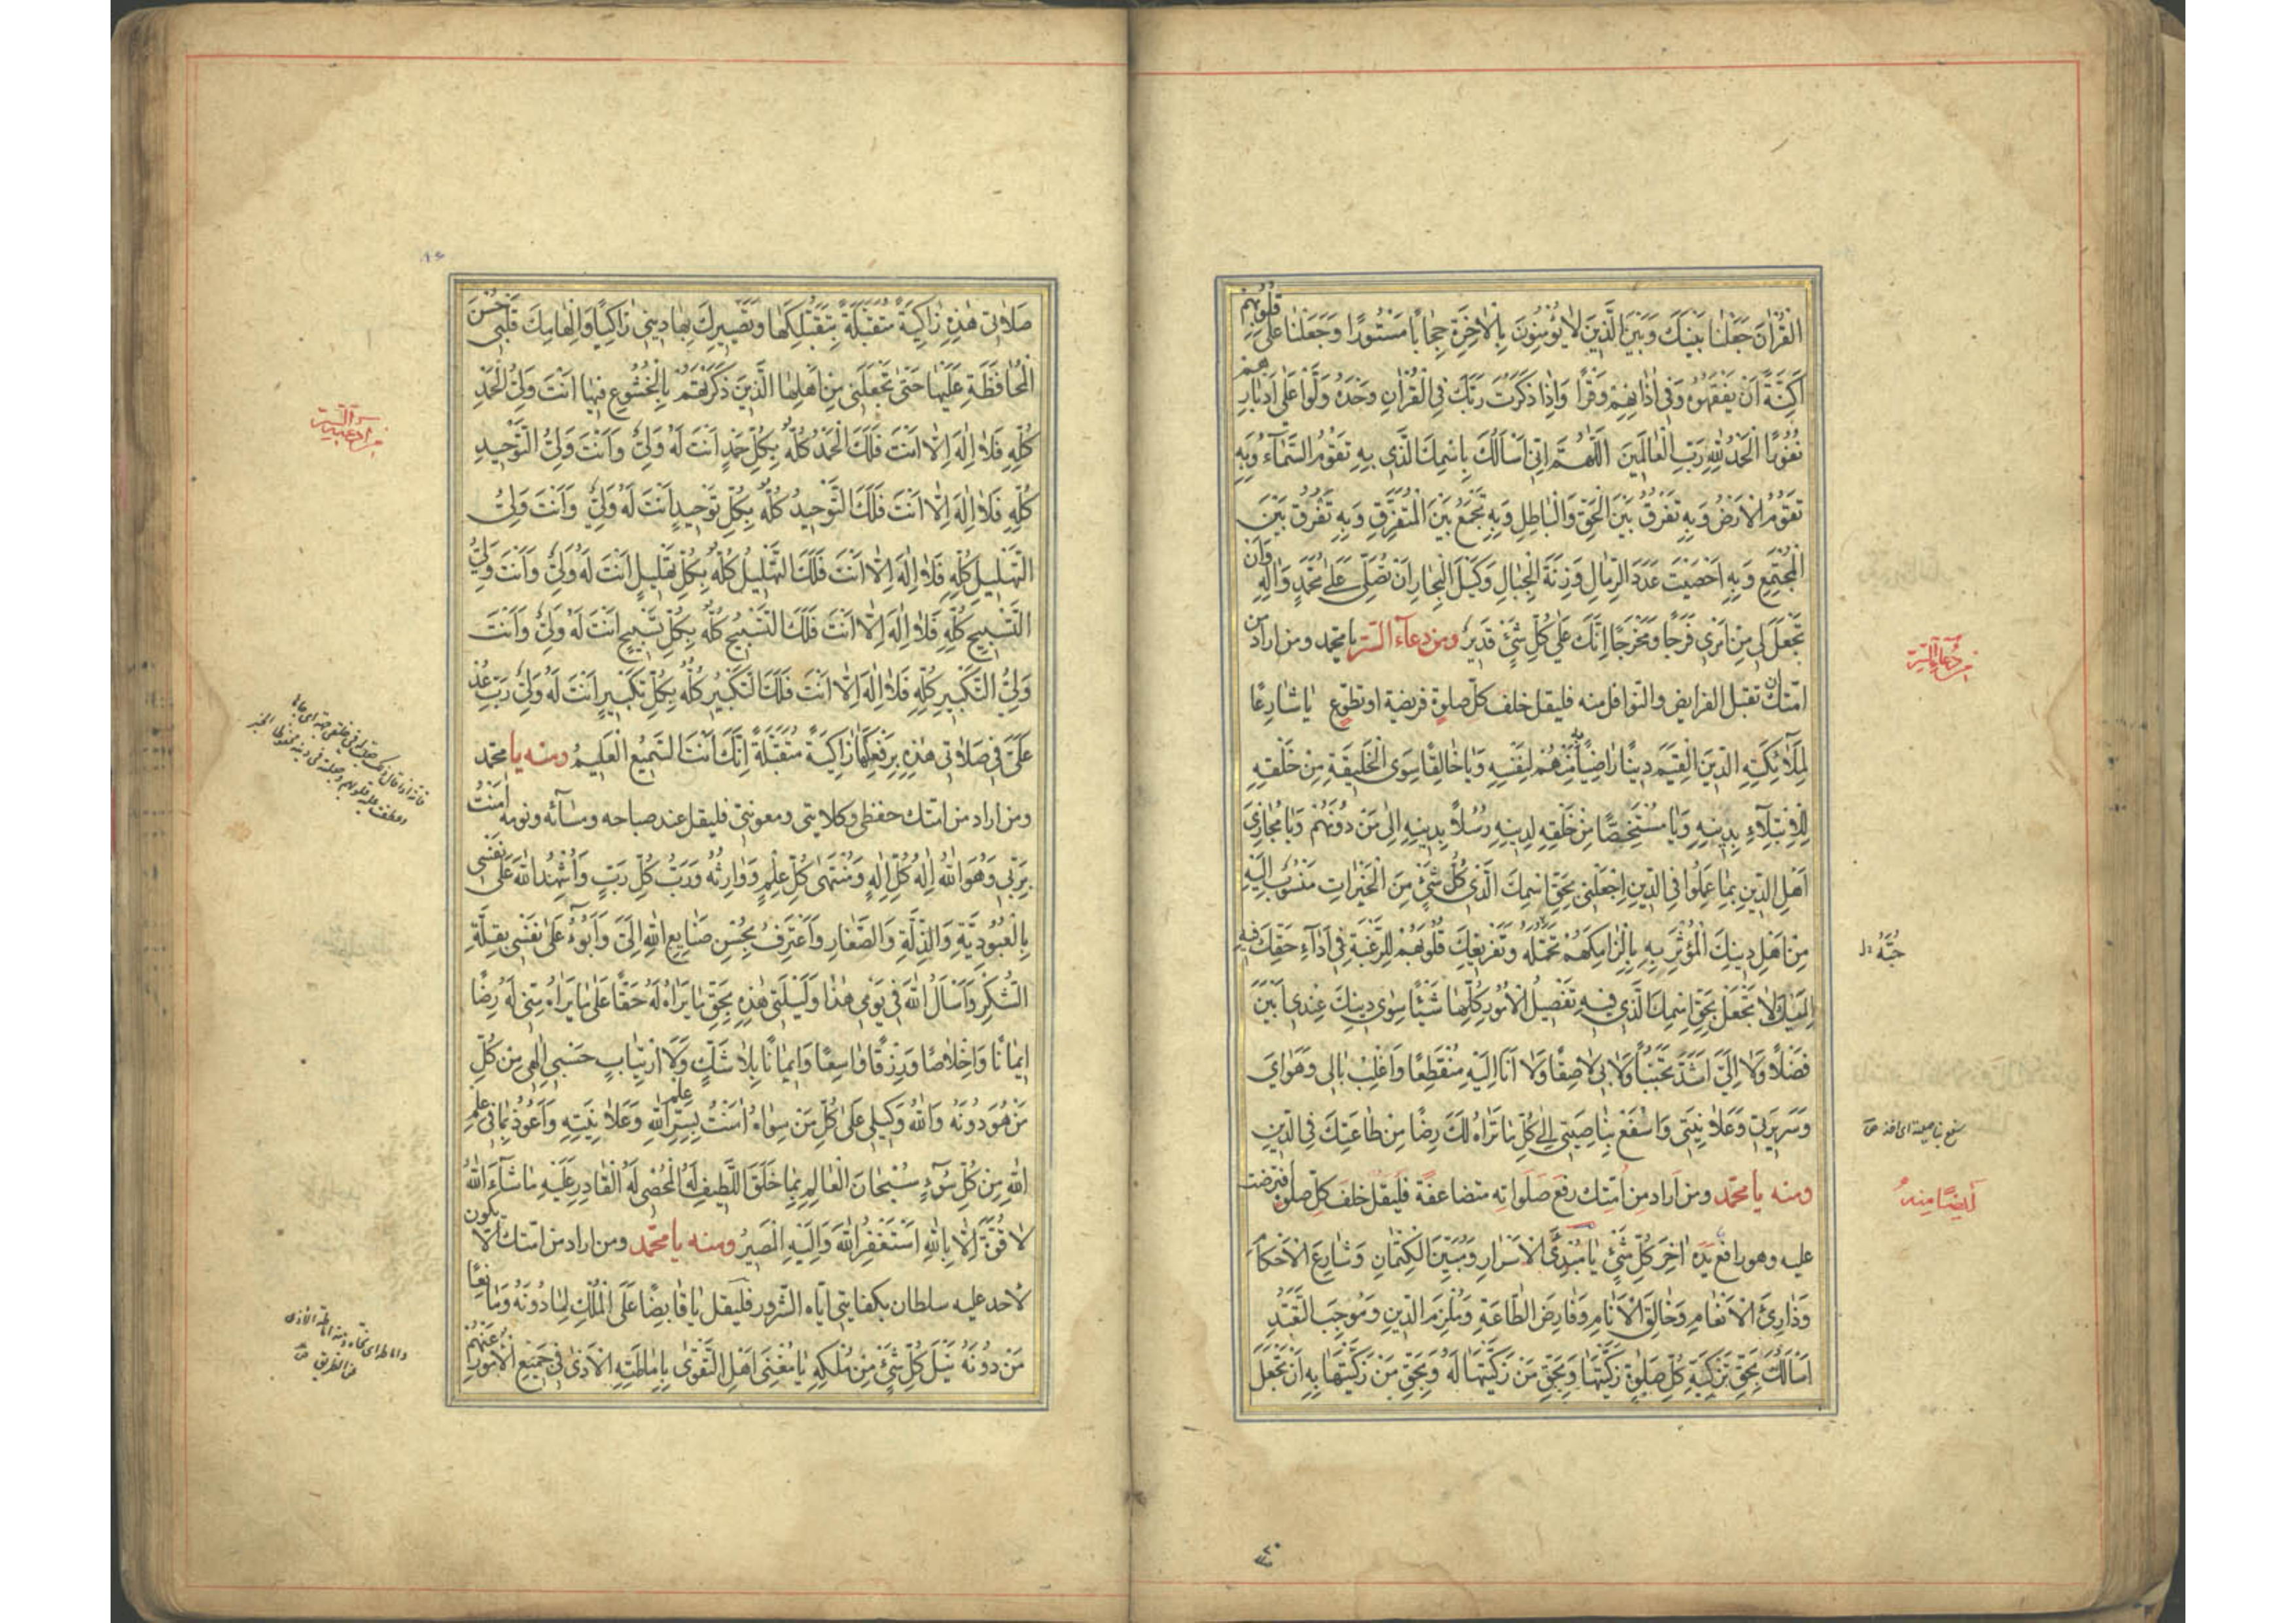 القُرْآنَ جَعَلْنَا بَيْنَكَ وَبَيْنَ الَّذِينَ لَا يُؤْمِنُونَ بِالْآخِرَةِ حِجَابًا مَسْتُورًا وَجَعَلْنَا عَلَى قُلُوبِهِمْ
أَكِنَّةً أَنْ يَفْقَهُوهُ وَفِي آذَانِهِمْ وَقْرًا وَإِذَا ذَكَرْتَ رَبَّكَ فِي الْقُرْآنِ وَحْدَهُ وَلَّوْا عَلَى أَدْبَارِهِمْ
نُفُورًا الْحَمْدُ لِلَّهِ رَبِّ الْعَالَمِينَ اللَّهُمَّ إِنِّي أَسْأَلُكَ بِاسْمِكَ الَّذِي بِهِ تَقُومُ السَّمَاءُ وَبِهِ
تَقُومُ الْأَرْضُ وَبِهِ تَفْرُقُ بَيْنَ الْحَقِّ وَالْبَاطِلِ وَبِهِ تَجْمَعُ بَيْنَ الْمُتَفَرِّقِ وَبِهِ تَفْرُقُ بَيْنَ
الْمُجْتَمِعِ وَبِهِ أَحْصَيْتَ عَدَدَ الرِّمَالِ وَزِنَةَ الْجِبَالِ وَكَيْلَ الْبِحَارِ أَنْ تُصَلِّيَ عَلَى مُحَمَّدٍ وَآلِهِ وَأَنْ
تَجْعَلَ لِي مِنْ أَمْرِي فَرَجًا وَمَخْرَجًا إِنَّكَ عَلَى كُلِّ شَيْءٍ قَدِيرٌ ومن دعاء السّر يا محمد ومن أراد من
امّتك ان تقبل الفرايض والنوافل منه فليقل خلف كلّ صلوة فريضة او تطوّع يَا شَارِعًا
لِمَلَائِكَتِهِ الدِّينَ الْقَيِّمَ دِينًا رَاضِيًا بِهِ مِنْهُمْ لِنَفْسِهِ وَيَا خَالِقًا سِوَى الْخَلِيقَةِ مِنْ خَلْقِهِ
لِلْابْتِلَاءِ بِدِينِهِ وَيَا مُسْتَخِصًّا مِنْ خَلْقِهِ لِدِينِهِ رُسُلًا بِدِينِهِ إِلَى مَنْ دُونَهُمْ وَيَا مُجَازِيَ
أَهْلِ الدِّينِ بِمَا عَمِلُوا فِي الدِّينِ اجْعَلْنِي بِحَقِّ اسْمِكَ الَّذِي كُلُّ شَيْءٍ مِنَ الْخَيْرَاتِ مَنْسُوبٌ إِلَيْهِ
مِنْ أَهْلِ دِينِكَ الْمُؤْثَرِ بِهِ بِإِلْزَامِكَهُمْ وَتَفْرِيغِكَ قُلُوبَهُمْ لِلرَّغْبَةِ فِي أَدَاءِ حَقِّكَ فِيهِ
إِلَيْكَ لَا تَجْعَلْ بِحَقِّ اسْمِكَ الَّذِي فِيهِ تَفْصِيلُ الْأُمُورِ كُلِّهَا شَيْئًا سِوَى دِينِكَ عِنْدِي أَبْيَنَ
فَضْلًا وَلَا إِلَيَّ أَشَدَّ تَحَبُّبًا وَلَا بِي لَاصِقًا وَلَا أَنَا إِلَيْهِ مُنْقَطِعًا وَاغْلِبْ بَالِي وَهَوَايَ
وَسَرِيرَتِي وَعَلَانِيَتِي وَاسْفَعْ بِنَاصِيَتِي إِلَى كُلِّ مَا تَرَاهُ لَكَ رِضًا مِنْ طَاعَتِكَ فِي الدِّينِ
ومنه يا محمّد ومن اراد من أمتك رفع صلواته متضاعفة فليقل خلف كلّ صلوة افترضت
عليه وهو رافع يده آخر كلّ شيء يَا مُبْدِئَ الْأَسْرَارِ وَمُبَيِّنَ الْكِتْمَانِ وَشَارِعَ الْأَحْكَامِ
وَذَارِئَ الْأَنْعَامِ وَخَالِقَ الْأَنَامِ وَفَارِضَ الطَّاعَةِ وَمُلْزِمَ الدِّينِ وَمُوجِبَ التَّعَبُّدِ
أَسْأَلُكَ بِحَقِّ تَزْكِيَةِ كُلِّ صَلَوةٍ زَكَّيْتَهَا وَبِحَقِّ مَنْ زَكَّيْتَهَا لَهُ وَبِحَقِّ مَنْ زَكَّيْتَهَا بِهِ أَنْ تَجْعَلَ
من دعاء السّر
أيضًا منه
صَلَاتِي هٰذِهِ زَاكِيَةً مُتَقَبَّلَةً بِتَقَبُّلِكَهَا وَتَصْيِيرِكَ بِهَا دِينِي زَاكِيًا وَإِلْهَامِكَ قَلْبِي حُسْنَ
الْمُحَافَظَةِ عَلَيْهَا حَتَّى تَجْعَلَنِي مِنْ أَهْلِهَا الَّذِينَ ذَكَرْتَهُمْ بِالْخُشُوعِ فِيهَا أَنْتَ وَلِيُّ الْحَمْدِ
كُلِّهِ فَلَا إِلَهَ إِلَّا أَنْتَ فَلَكَ الْحَمْدُ كُلُّهُ بِكُلِّ حَمْدٍ أَنْتَ لَهُ وَلِيٌّ وَأَنْتَ وَلِيُّ التَّوْحِيدِ
كُلِّهِ فَلَا إِلَهَ إِلَّا أَنْتَ فَلَكَ التَّوْحِيدُ كُلُّهُ بِكُلِّ تَوْحِيدٍ أَنْتَ لَهُ وَلِيٌّ وَأَنْتَ وَلِيُّ
التَّهْلِيلِ كُلِّهِ فَلَا إِلَهَ إِلَّا أَنْتَ فَلَكَ التَّهْلِيلُ كُلُّهُ بِكُلِّ تَهْلِيلٍ أَنْتَ لَهُ وَلِيٌّ وَأَنْتَ وَلِيُّ
التَّسْبِيحِ كُلِّهِ فَلَا إِلَهَ إِلَّا أَنْتَ فَلَكَ التَّسْبِيحُ كُلُّهُ بِكُلِّ تَسْبِيحٍ أَنْتَ لَهُ وَلِيٌّ وَأَنْتَ
وَلِيُّ التَّكْبِيرِ كُلِّهِ فَلَا إِلَهَ إِلَّا أَنْتَ فَلَكَ التَّكْبِيرُ كُلُّهُ بِكُلِّ تَكْبِيرٍ أَنْتَ لَهُ وَلِيٌّ رَبِّ عُدْ
عَلَيَّ فِي صَلَاتِي هٰذِهِ بِرَفْعِكَهَا زَاكِيَةً مُتَقَبَّلَةً إِنَّكَ أَنْتَ السَّمِيعُ الْعَلِيمُ ومنه يا محمد
ومن اراد من امتك حفظى وكلايتى ومعونتى فليقل عند صباحه ومسائه ونومه آمَنْتُ
بِرَبِّي وَهُوَ اللَّهُ إِلَهُ كُلِّ إِلَهٍ وَمُنْتَهَى كُلِّ عِلْمٍ وَوَارِثُهُ وَرَبُّ كُلِّ رَبٍّ وَأُشْهِدُ اللَّهَ عَلَى نَفْسِي
بِالْعُبُودِيَّةِ وَالذِّلَّةِ وَالصَّغَارِ وَأَعْتَرِفُ بِحُسْنِ صَنَايِعِ اللَّهِ إِلَيَّ وَأَبُوءُ عَلَى نَفْسِي بِقِلَّةِ
الشُّكْرِ وَأَسْأَلُ اللَّهَ فِي يَوْمِي هٰذَا وَلَيْلَتِي هٰذِهِ بِحَقِّ مَا يَرَاهُ لَهُ حَقًّا عَلَى مَا يَرَاهُ مِنِّي لَهُ رِضًا
إِيمَانًا وَإِخْلَاصًا وَرِزْقًا وَاسِعًا وَإِيمَانًا بِلَا شَكٍّ وَلَا ارْتِيَابٍ حَسْبِي إِلَهِي مِنْ كُلِّ
مَنْ هُوَ دُونَهُ وَاللَّهُ وَكِيلِي عَلَى كُلِّ مَنْ سِوَاهُ آمَنْتُ بِسِرِّ عِلْمِ اللَّهِ وَعَلَانِيَتِهِ وَأَعُوذُ بِمَا فِي عِلْمِ
اللَّهِ مِنْ كُلِّ سُوءٍ سُبْحَانَ الْعَالِمِ بِمَا خَلَقَ اللَّطِيفِ لَهُ الْمُحْصِي لَهُ الْقَادِرِ عَلَيْهِ مَا شَاءَ اللَّهُ
لَا قُوَّةَ إِلَّا بِاللَّهِ أَسْتَغْفِرُ اللَّهَ وَإِلَيْهِ الْمَصِيرُ ومنه يا محمّد ومن اراد من امتك الّا يكون
لأحد عليه سلطان بكفايتى ايّاه الشرور فليقل يَا قَابِضًا عَلَى الْمُلْكِ لِمَا دُونَهُ وَمَانِعًا
مَنْ دُونَهُ نَيْلَ كُلِّ شَيْءٍ مِنْ مُلْكِهِ يَا مُغْنِيَ أَهْلِ التَّقْوَى بِإِمَاطَتِهِ الْأَذَى فِي جَمِيعِ الْأُمُورِ عَنْهُمْ
من ادعية السّر